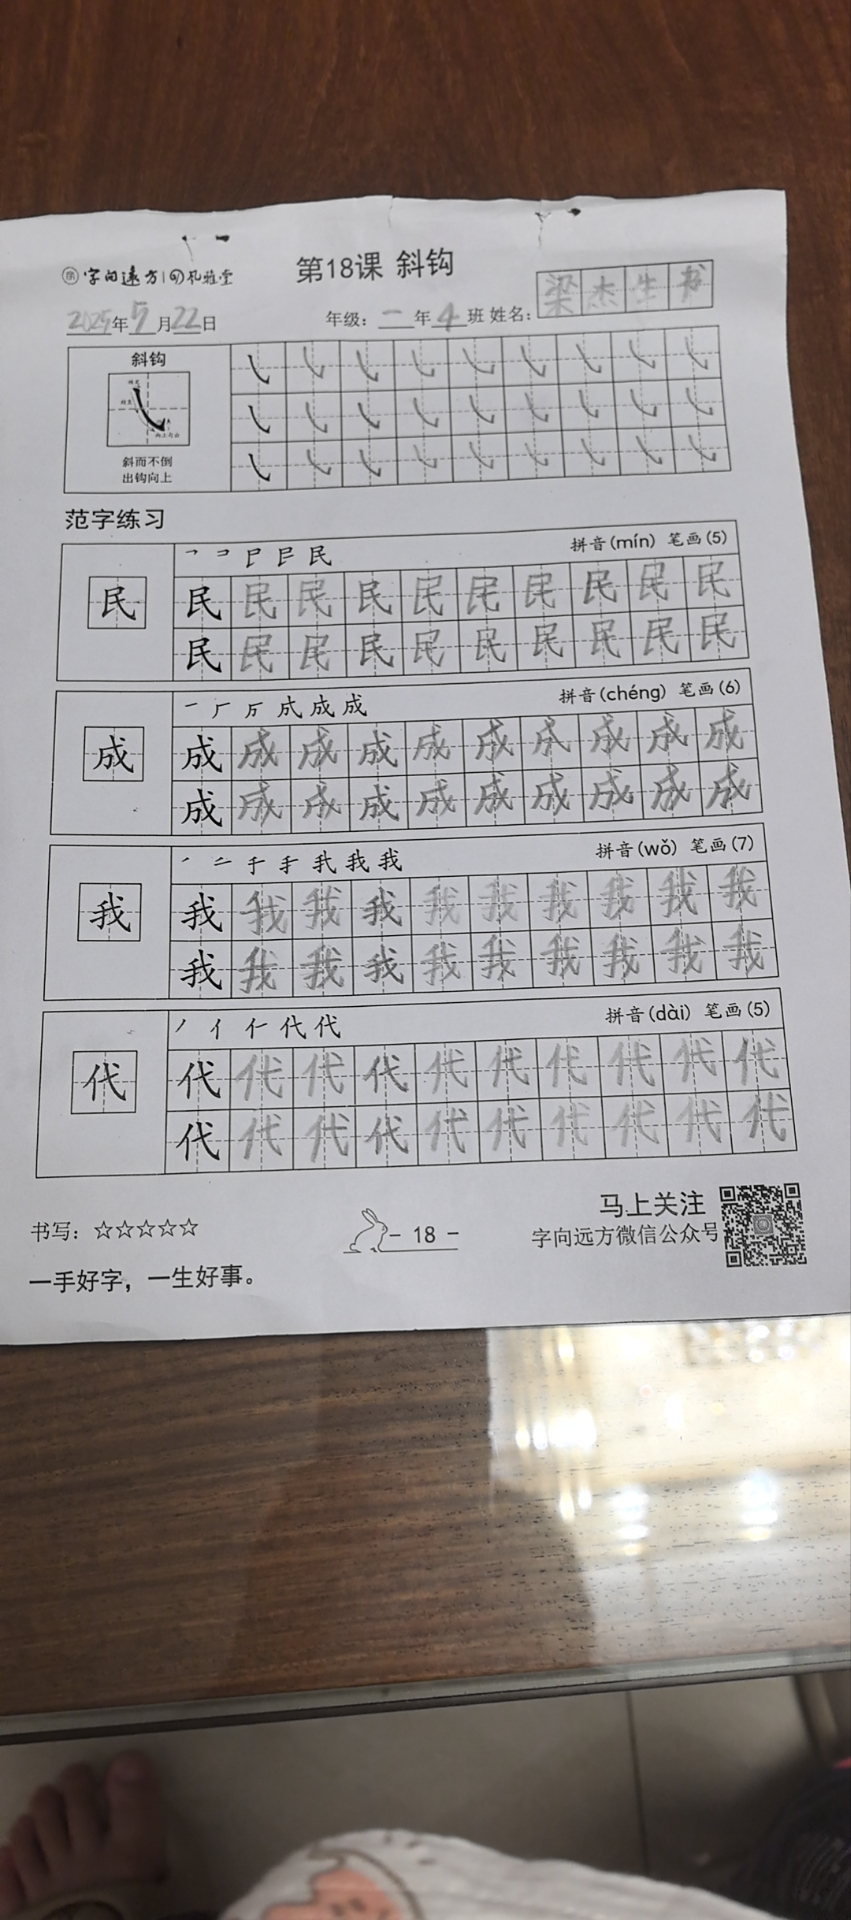 字向远方 第18课 斜钩
2025年5月22日 年级：一年4班 姓名：梁杰生书
斜钩
斜而不倒
出钩向上
范字练习
民 拼音(mín) 笔画(5)
民 民 民 民 民 民 民 民 民 民
民 民 民 民 民 民 民 民 民 民
成 拼音(chéng) 笔画(6)
成 成 成 成 成 成 成 成 成 成
成 成 成 成 成 成 成 成 成 成
我 拼音(wǒ) 笔画(7)
我 我 我 我 我 我 我 我 我 我
我 我 我 我 我 我 我 我 我 我
代 拼音(dài) 笔画(5)
代 代 代 代 代 代 代 代 代 代
代 代 代 代 代 代 代 代 代 代
书写：☆☆☆☆☆
- 18 -
马上关注
字向远方微信公众号
一手好字，一生好事。